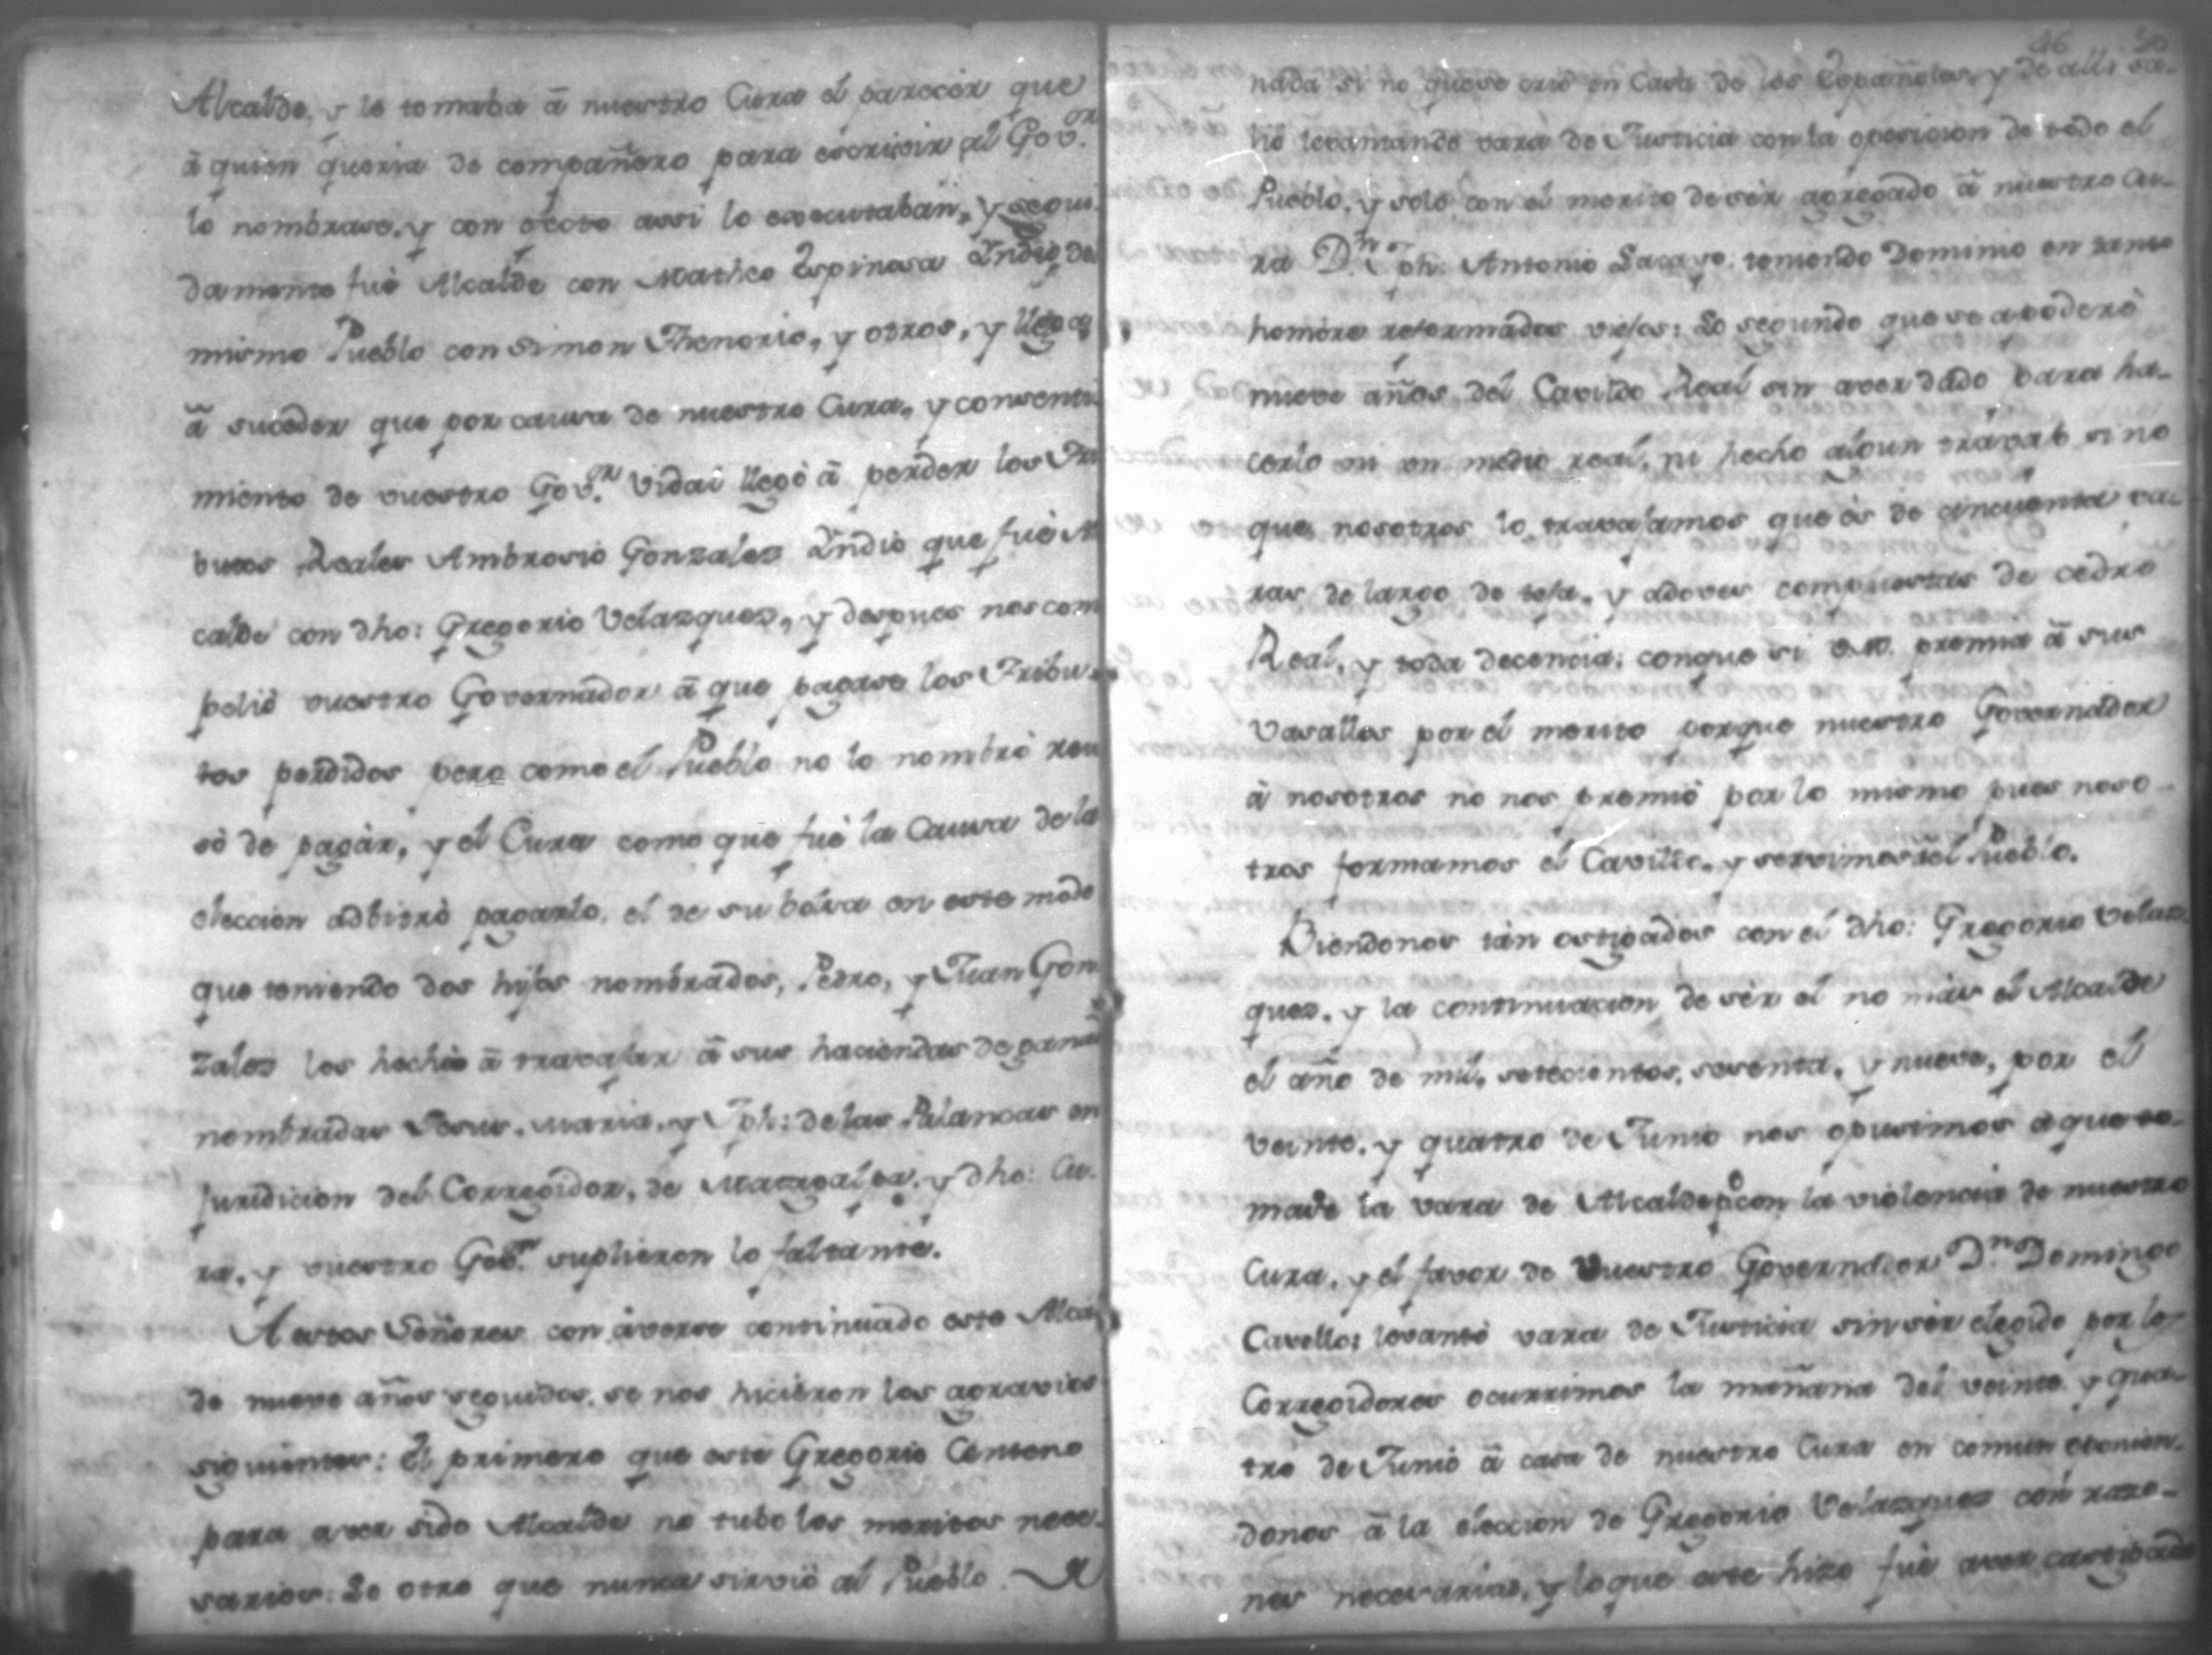 Alcalde, y le tomaba â nuestro Cura el parecer que
â quien queria de compañero para escrivir al Gov.or
lo nombrase, y con efecto assi lo executaban, y segui-
damente fuè Alcalde con Matheo Espinosa Yndio del
mismo Pueblo con Simon Thenorio, y otros, y llegó
â suceder que por causa de nuestro Cura, y consenti
miento de vuestro Gov.or Vidai llegò â perder los Tri
butos Reales Ambrosio Gonzales Yndio que fuè Al
calde con dho: Gregorio Velazquez, y despues nos com
peliò vuestro Governador â que pagase los Tribu-
tos perdidos pero como el Pueblo no lo nombrò reu
sò de pagàr, y el Cura como que fuè la Causa de la
eleccion adbitrò pagarlo, el de su bolsa en este modo
que teniendo dos hijos nombrados, Pedro, y Juan Gon
zales los hechò â travajar â sus haciendas de ganado
nombradas Jesus, Maria, y Jph: de las Palancas en
juridicion del Corregidor, de Matagalpa, y dho: Cu-
ra, y vuestro Gov.or suplieron lo faltante.
A estos Señores con averse continuado este Alcal
de nueve años seguidos, se nos hicieron los agravios
siguientes: El primero que este Gregorio Centeno
para aver sido Alcalde no tubo los meritos nece-
sarios: Lo otro que nunca sirviò al Pueblo
46 50
nada si no que se criò en Casa de los Españoles, y de alli sa-
liò levantando vara de Justicia con la oposicion de todo el
Pueblo, y solo con el merito de sèr agregado â nuestro Cu-
ra D.n Jph: Antonio Lacayo, teniendo Dominio en tanto
hombre reformados viejos: Lo segundo que se apoderò
nueve años, del Cavildo Real sin aver dado para ha-
cerlo ni un medio real, ni hecho algun travajo si no
que nosotros lo travajamos que ès de cincuenta va-
ras de largo de teja, y adoves compuestas de cedro
Real, y toda decencia; conque si V.M. premia â sus
Vasallos por el merito porque nuestro Governador
â nosotros no nos premiò por lo mismo pues noso-
tros formamos el Cavildo, y servimos al Pueblo.
Viendonos tan ostigados con el dho: Gregorio Velaz
ques, y la continuacion de sèr el no màs el Alcalde
el año de mil, setecientos, sesenta, y nueve, por el
veinte, y quatro de Junio nos opusimos a que to-
mase la vara de Alcalde con la violencia de nuestro
Cura, y el favor de Vuestro Governador D.n Domingo
Cavello; levantò vara de Justicia sin sèr elegido por los
Corregidores ocurrimos la mañana del veinte y qua-
tro de Junio â casa de nuestro Cura en comun oponien-
donos â la eleccion de Gregorio Velazquez con razo-
nes necesarias, y lo que este hizo fuè aver castigado